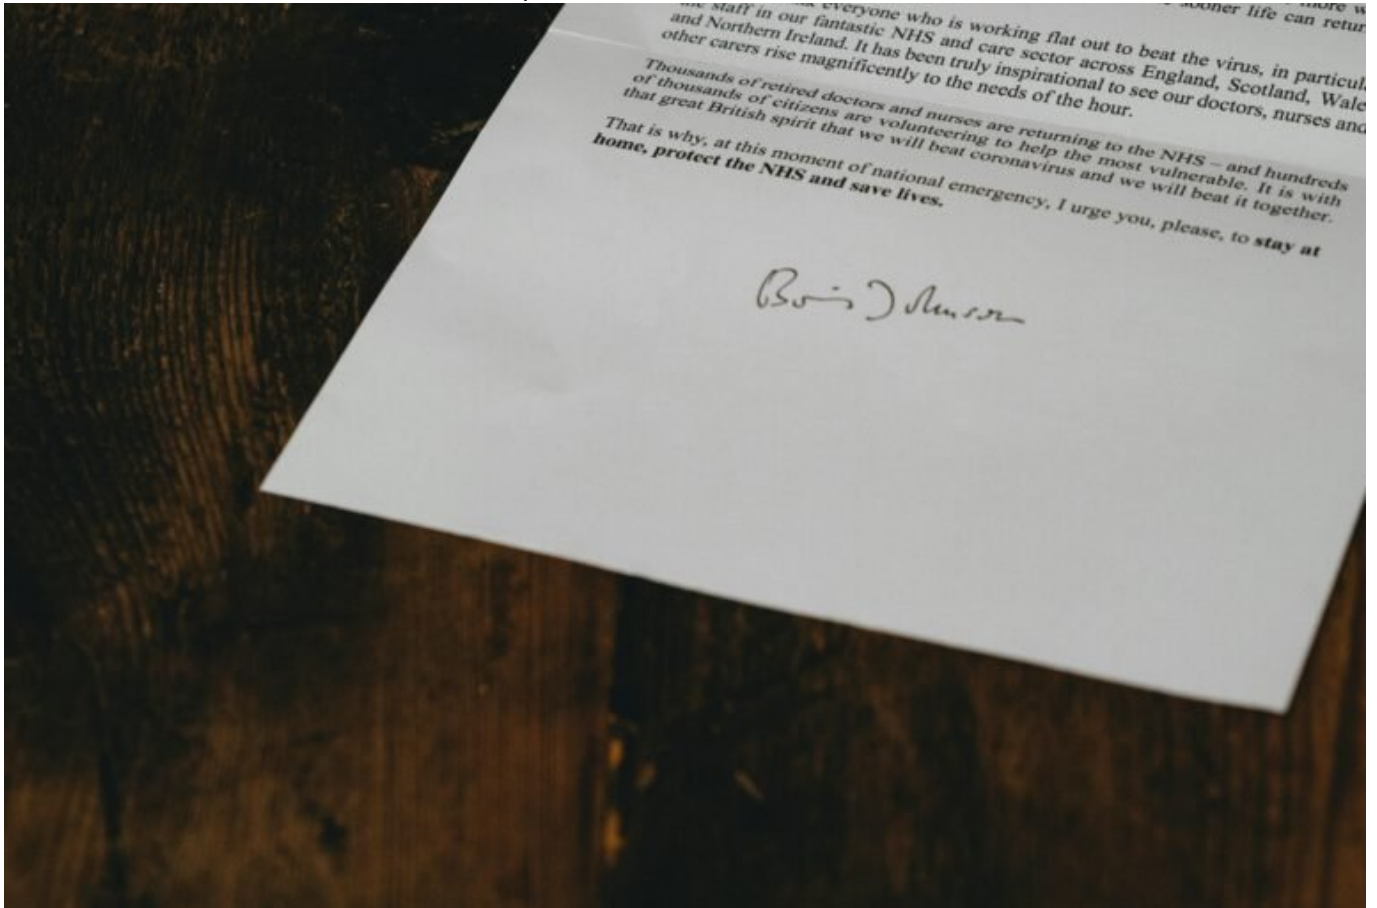 more
sooner life can retur
everyone who is working flat out to beat the virus, in particul
the staff in our fantastic NHS and care sector across England, Scotland, Wale
and Northern Ireland. It has been truly inspirational to see our doctors, nurses and
other carers rise magnificently to the needs of the hour.
Thousands of retired doctors and nurses are returning to the NHS – and hundreds
of thousands of citizens are volunteering to help the most vulnerable. It is with
that great British spirit that we will beat coronavirus and we will beat it together.
That is why, at this moment of national emergency, I urge you, please, to stay at
home, protect the NHS and save lives.
Boris Johnson